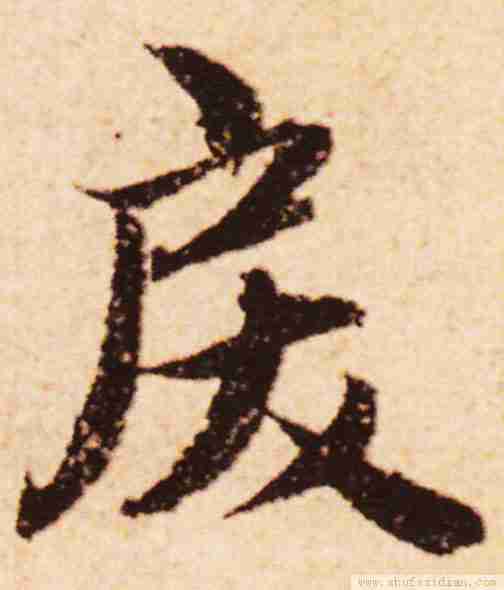 戾
www.shufazidian.com